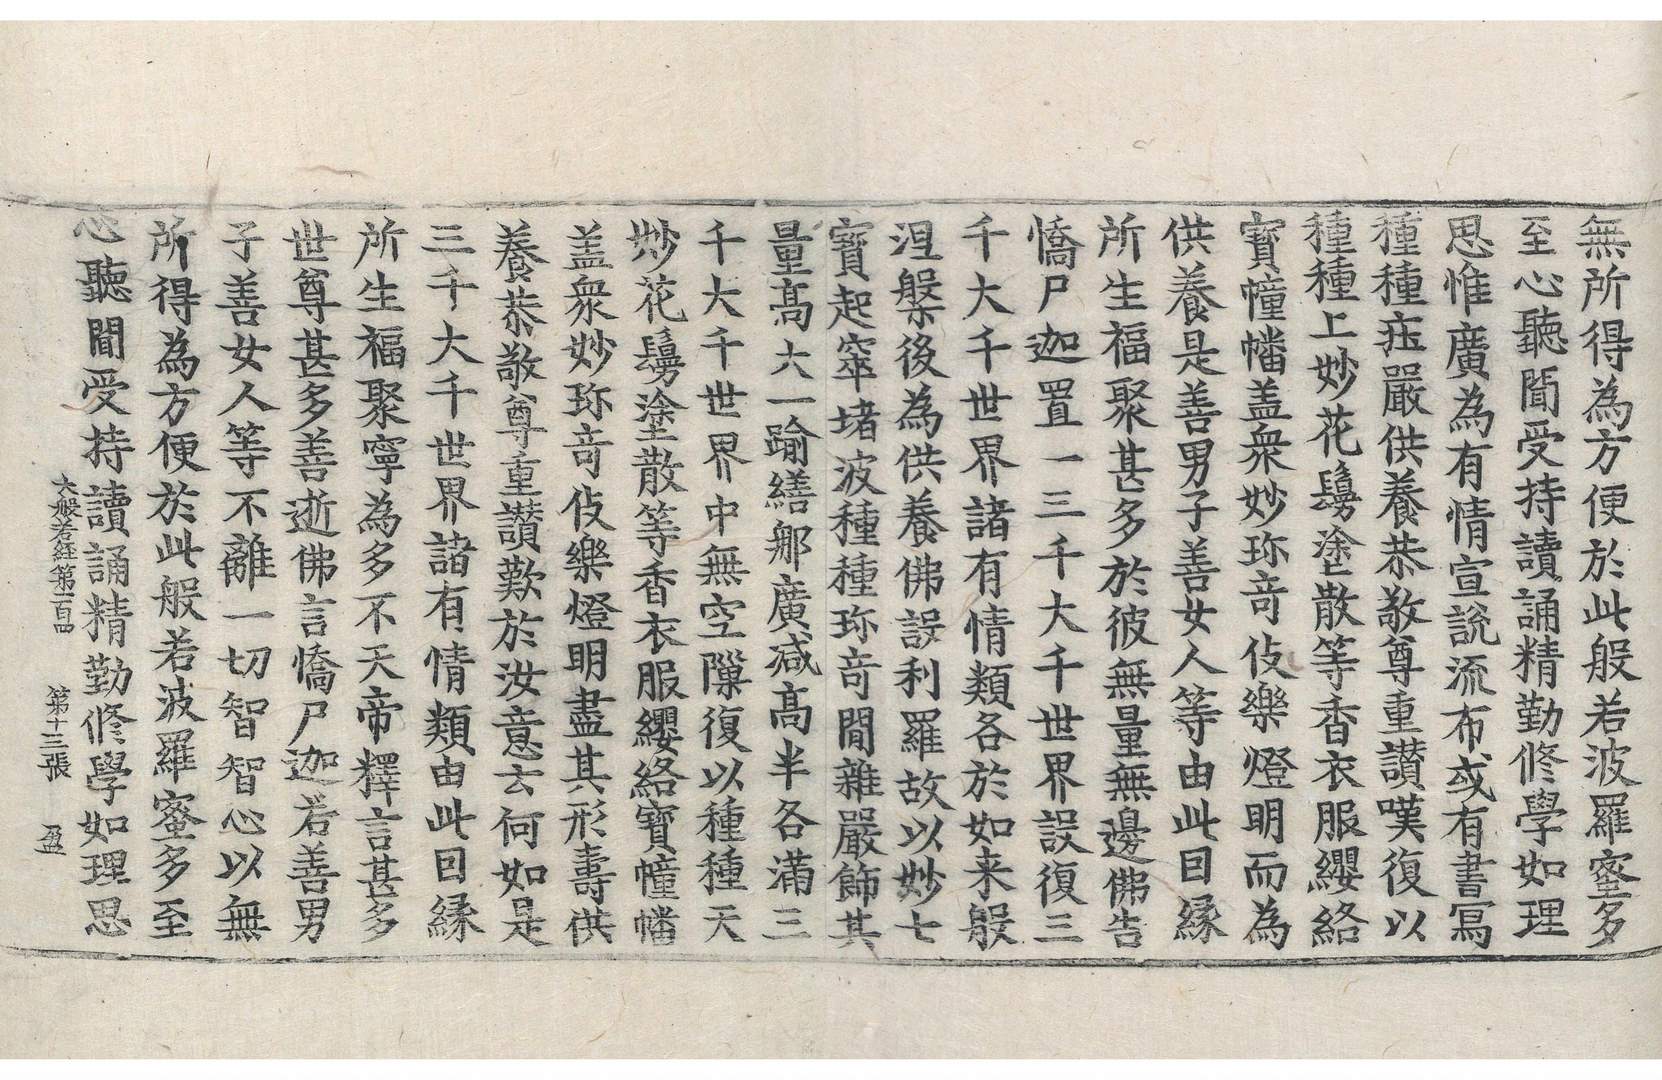 無所得為方便於此般若波羅蜜多
至心聽聞受持讀誦精勤修學如理
思惟廣為有情宣說流布或有書寫
種種莊嚴供養恭敬尊重讚嘆復以
種種上妙花鬘塗散等香衣服纓絡
寶幢幡盖衆妙珎竒伎樂燈明而為
供養是善男子善女人等由此因緣
所生福聚甚多於彼無量無邊佛告
憍尸迦置一三千大千世界設復三
千大千世界諸有情類各於如来般
涅槃後為供養佛設利羅故以妙七
寶起窣堵波種種珎竒間雜嚴飾其
量高大一踰繕那廣減高半各滿三
千大千世界中無空隟復以種種天
妙花鬘塗散等香衣服纓絡寶幢幡
盖衆妙珎竒伎樂燈明盡其形壽供
養恭敬尊重讚歎於汝意云何如是
三千大千世界諸有情類由此因緣
所生福聚寧為多不天帝釋言甚多
世尊甚多善逝佛言憍尸迦若善男
子善女人等不離一切智智心以無
所得為方便於此般若波羅蜜多至
心聽聞受持讀誦精勤修學如理思
大般若經第一百四 第十三張 盈